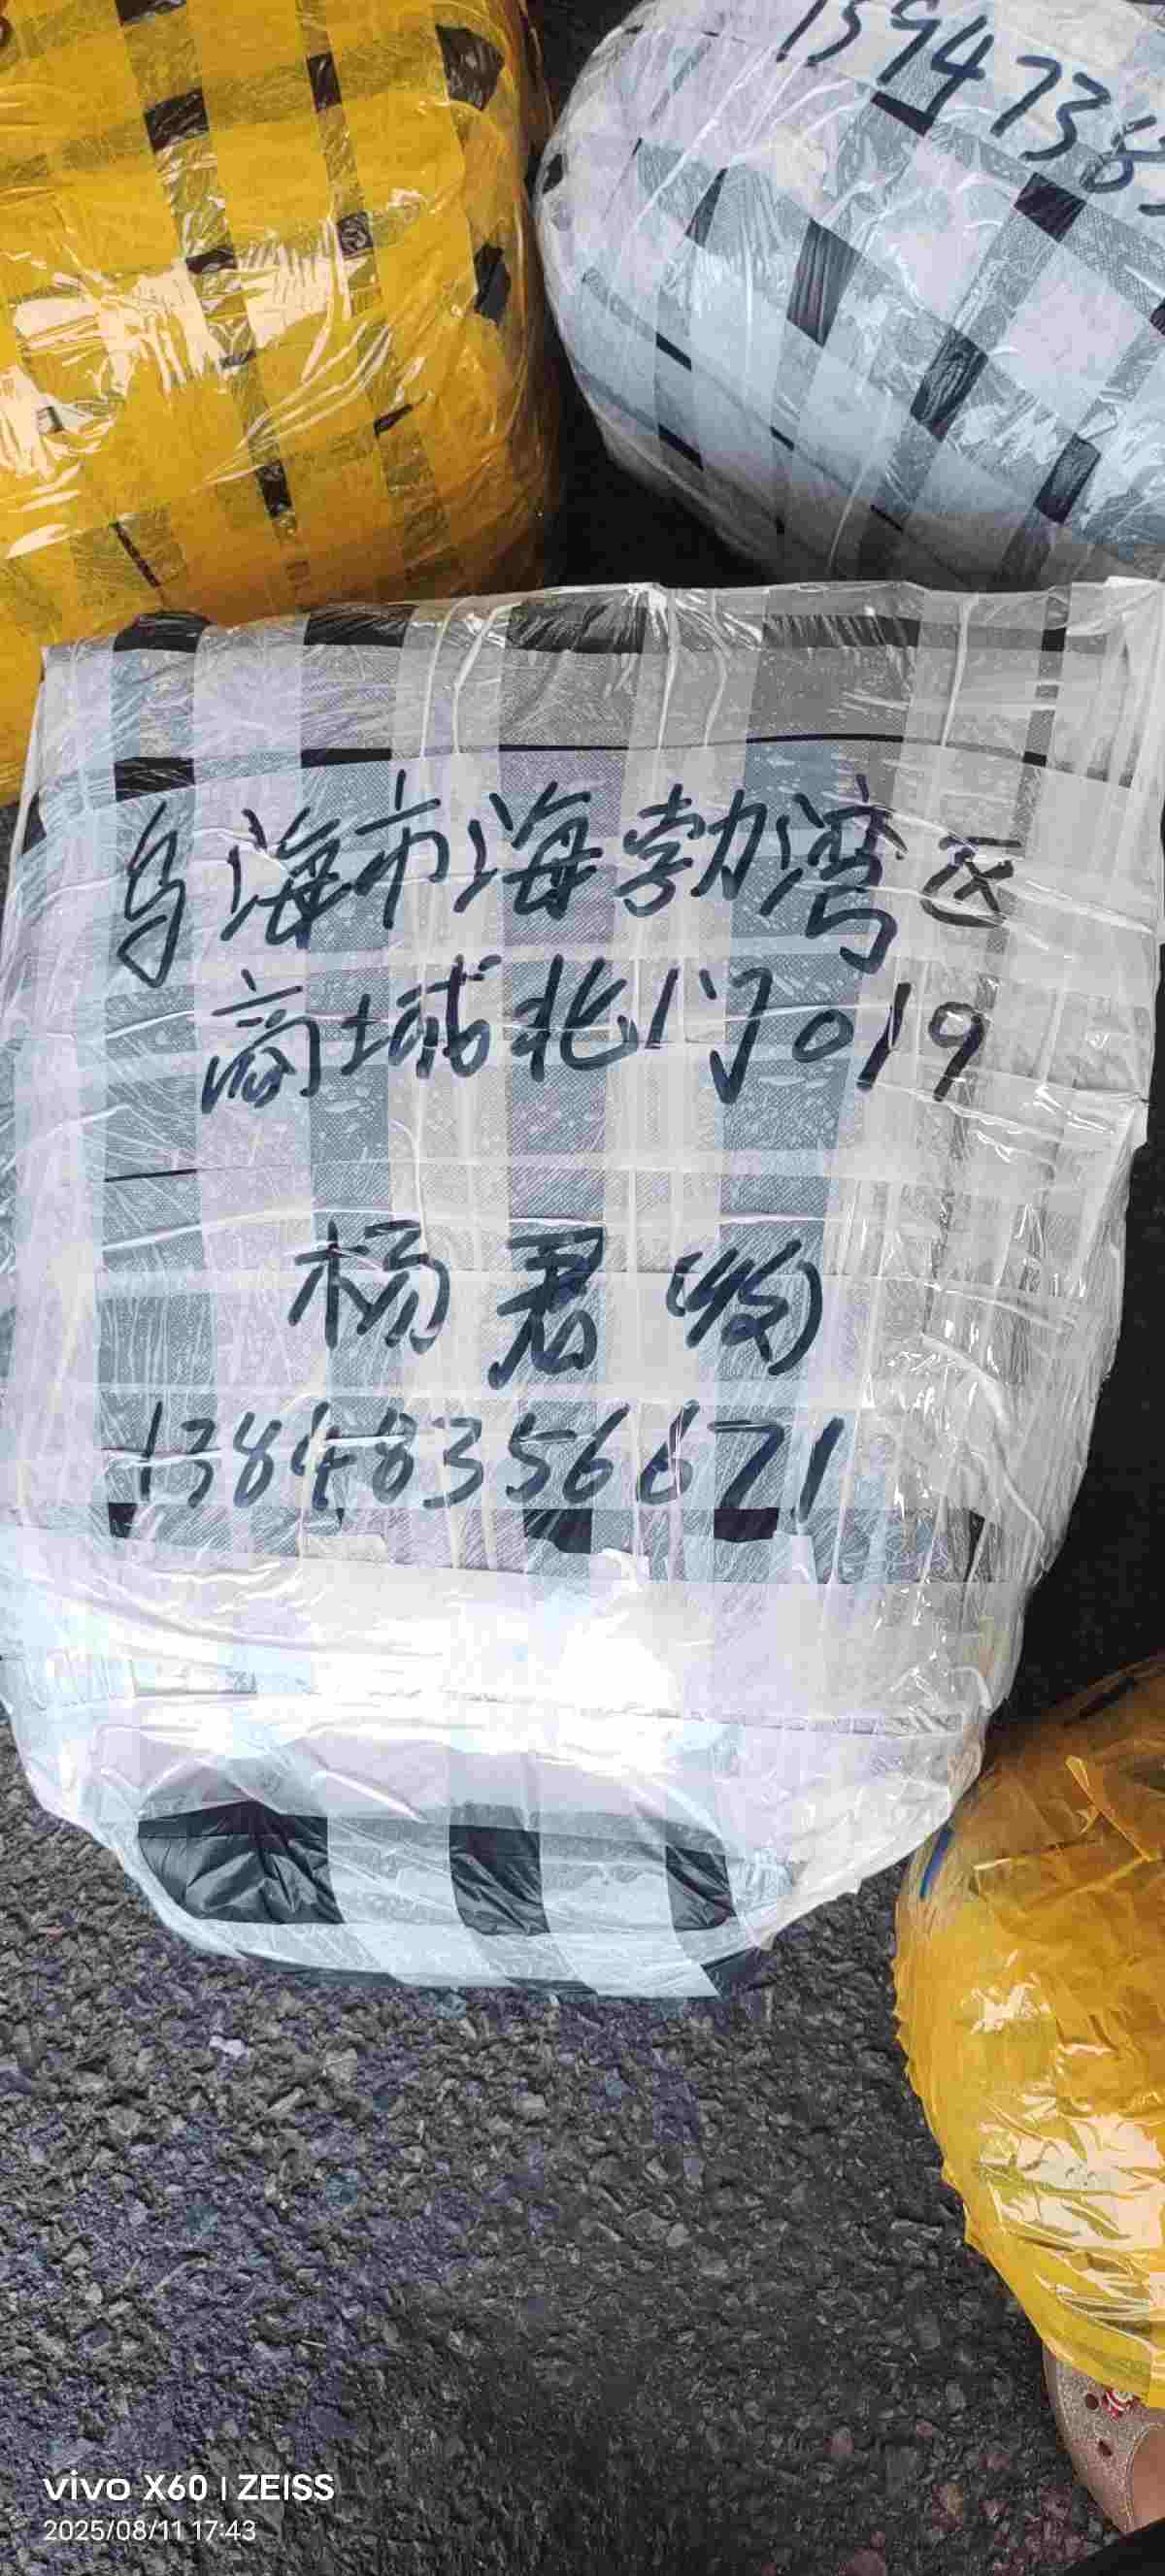 1394738
乌海市海勃湾区
商城北门019
杨君(收)
13848356671
vivo X60 | ZEISS
2025/08/11 17:43